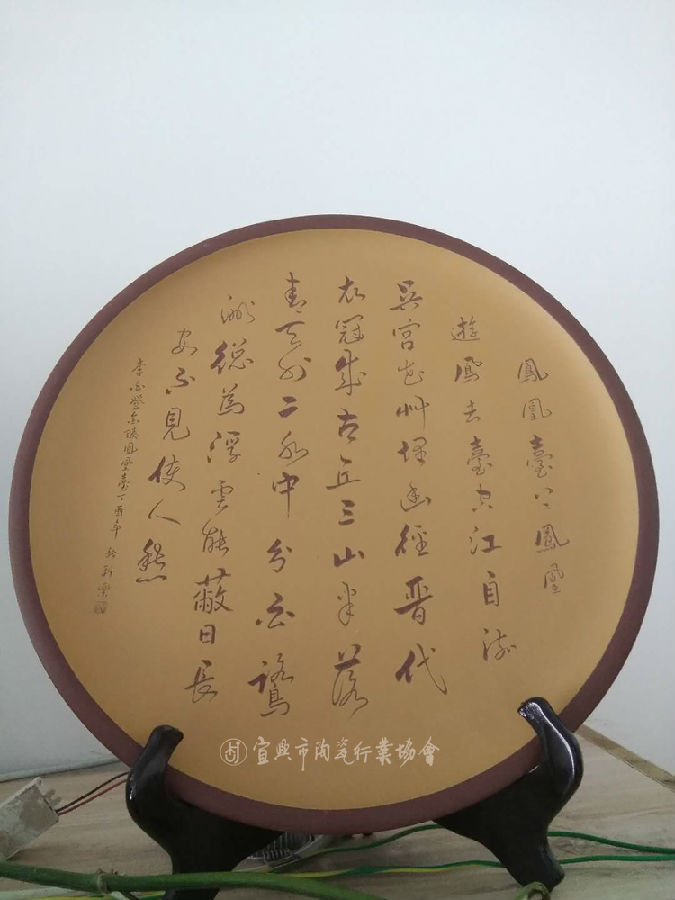 鳳凰臺上鳳凰
遊鳳去臺空江自流
吳宮花艸埋幽徑晉代
衣冠成古丘三山半落
青天外二水中分白鷺
洲總為浮雲能蔽日長
安不見使人愁
李白登金陵鳳凰臺丁酉年
宜興市陶瓷行業協會